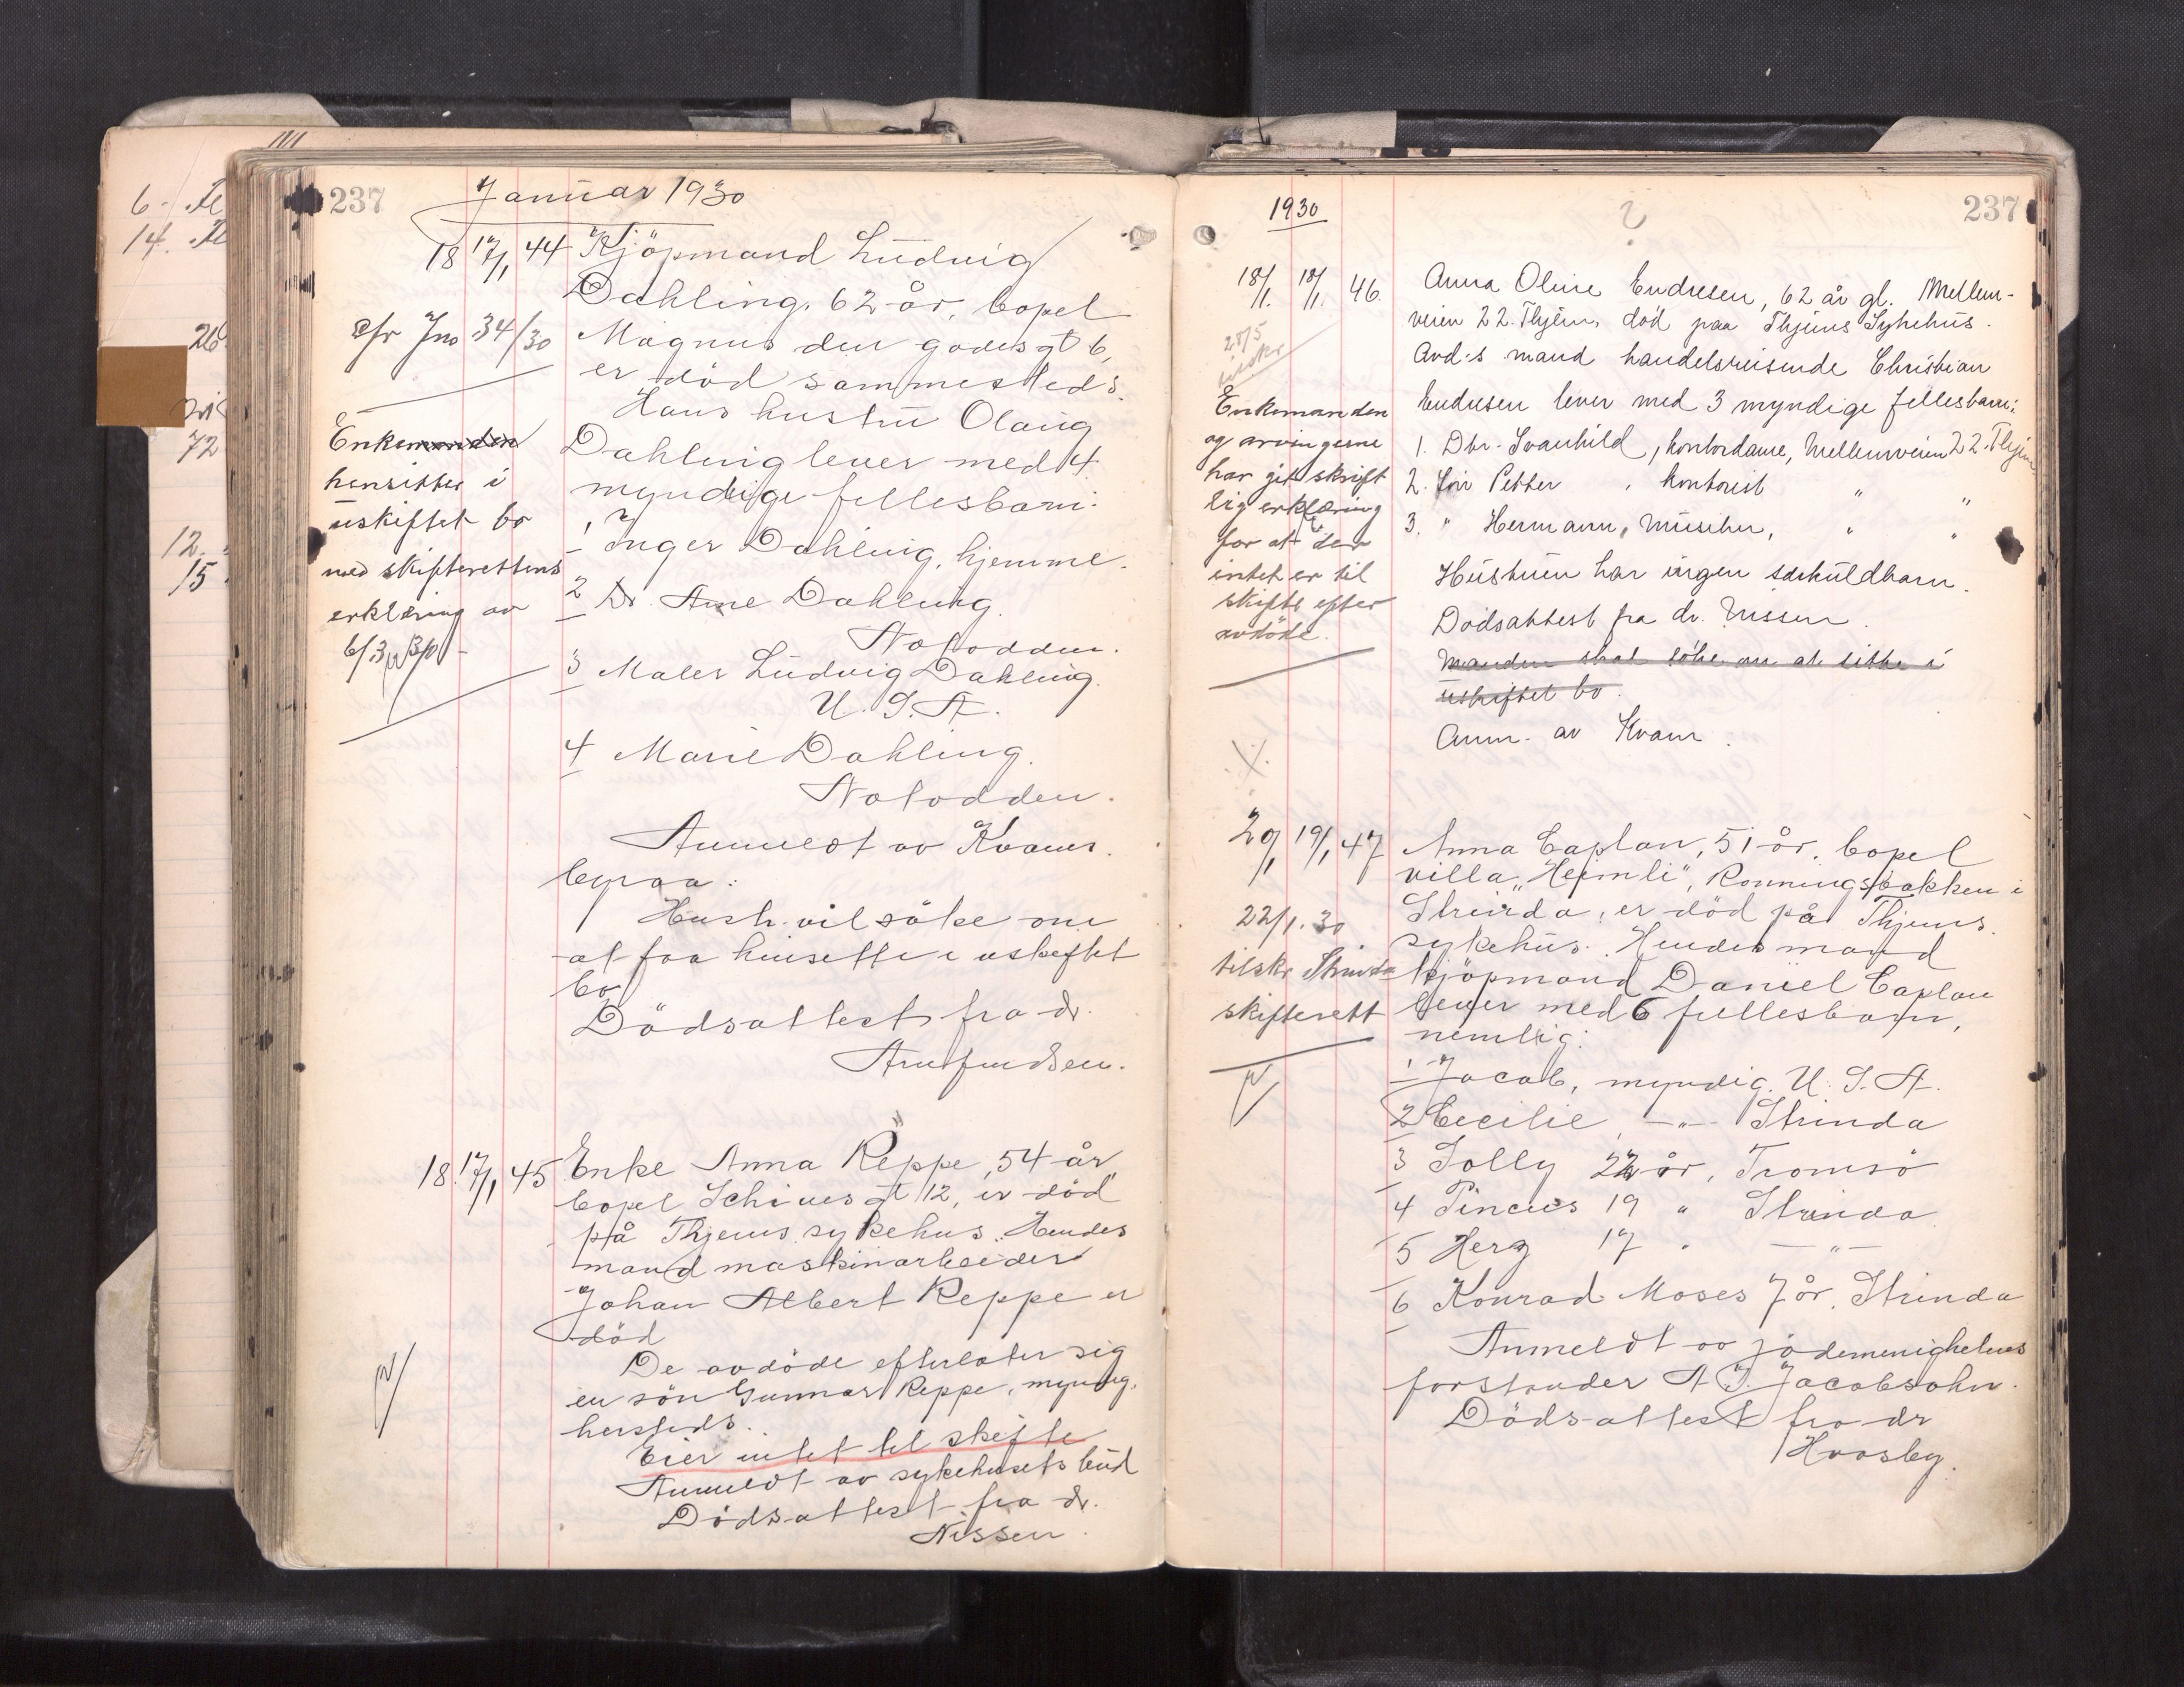 237
Januar 1930
18 17/1 44 Kjöpmand Ludvig
Dahling, 62 år, bopel
cfr Jno 34/30
Magnus den godes gt 6,
er död sammesteds.
Hans hustru Olaug
Dahling lever med 4
myndige fellesbarn:
Enkemanden
hensitter i
uskiftet bo
med skifterettens
erklæring av
6/3 30
1 Inger Dahling, hjemme.
2 Dr. Arne Dahling
Notodden.
3 Maler Ludvig Dahling.
U.S.A.
4 Marie Dahling.
Notodden.
Anmeldt av Kvams
byraa:
Hustr. vil söke om
at faa hensitte i uskiftet
bo
Dödsattest fra dr.
Arnfindsen.
18 17/1 45 Enke Anna Reppe, 54 år
bopel Schives gt 12, er död
på Thjems sykehus. Hendes
mand maskinarbeider
Johan Albert Reppe er
död
De avdöde efterlater sig
en sön Gunnar Reppe, myndig,
hersteds.
Eier intet til skifte
Anmeldt av sykehusets bud
Dödsattest fra dr.
Nissen.
1930
237
18/1. 18/1. 46.
Anna Oline Endresen, 62 år gl. Mellem-
veien 22. Thjem, död paa Thjems Sykehus.
Avd-s mand handelsreisende Christian
Endresen lever med 3 myndige fellesbarn:
1. Dtr. Svanhild, kontordame, Mellemveien 22. Thjem
2. Sön Petter, kontorist " "
3. " Hermann, musiker, " "
Hustruen har ingen særkuldbarn.
Dödsattest fra dr. Nissen.
Manden skal söke om at sitte i
uskiftet bo.
Anm. av Kvam.
28/5
tilskr
Enkemanden
og arvingerne
har git skrift
lig erklæring
for at der
intet er til
skifte efter
avdöde.
20/1 19/1 47 Anna Caplan, 51 år, bopel
villa "Heimli", Ronningsbakken i
Strinda, er död på Thjems
sykehus. Hendes mand
kjöpmand Daniel Caplan
lever med 6 fellesbarn,
nemlig:
22/1.30
tilskr Strinda
skifterett
1 Jacob, myndig. U.S.A.
2 Cecilie, —"— Strinda
3 Solly 22 år, Tromsö
4 Pincus 19 " Strinda
5 Herz 17 " —"—
6 Konrad Moses 7 år, Strinda
Anmeldt av jödemenighetens
forstander A. J. Jacobsohn.
Dödsattest fra dr
Hvosley.